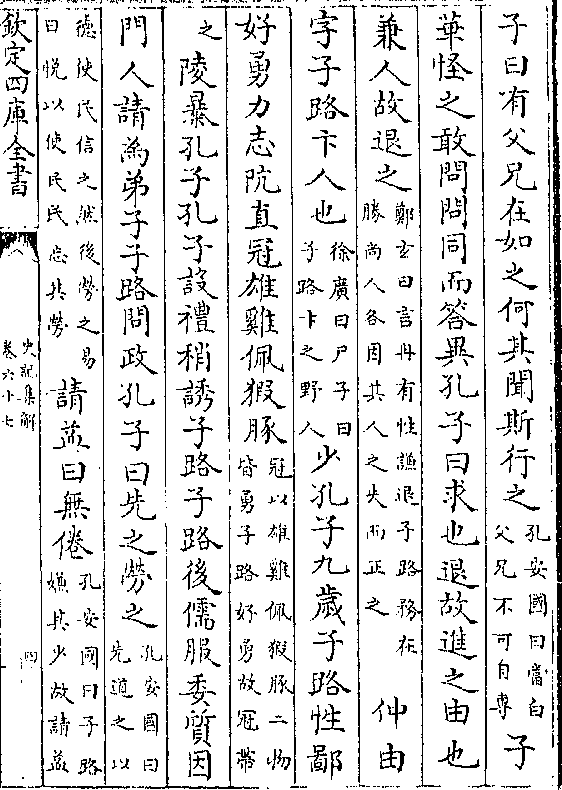 子曰有父兄在如之何其聞斯行之孔安國曰當白父兄不可自專子
華怪之敢問問同而答異孔子曰求也退故進之由也
兼人故退之鄭玄曰言冉有性謙退子路務在勝尚人各因其人之失而正之仲由
字子路卞人也徐廣曰尸子曰子路卞之野人少孔子九歲子路性鄙
好勇力志伉直冠雄雞佩猳豚冠以雄雞佩猳豚二物皆勇子路好勇故冠帶
之陵暴孔子孔子設禮稍誘子路子路後儒服委質因
門人請為弟子子路問政孔子曰先之勞之孔安國曰先道之以
德使民信之然後勞之易曰悅以使民民忘其勞請益曰無倦孔安國曰子路嫌其少故請益
欽定四庫全書
史記集解
卷六十七
四